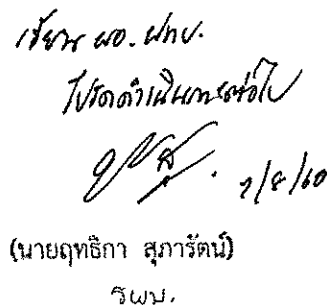 เรียน ผอ. ฝทบ.
โปรดดำเนินการต่อไป
(นายฤทธิกา สุภารัตน์)
รผบ.